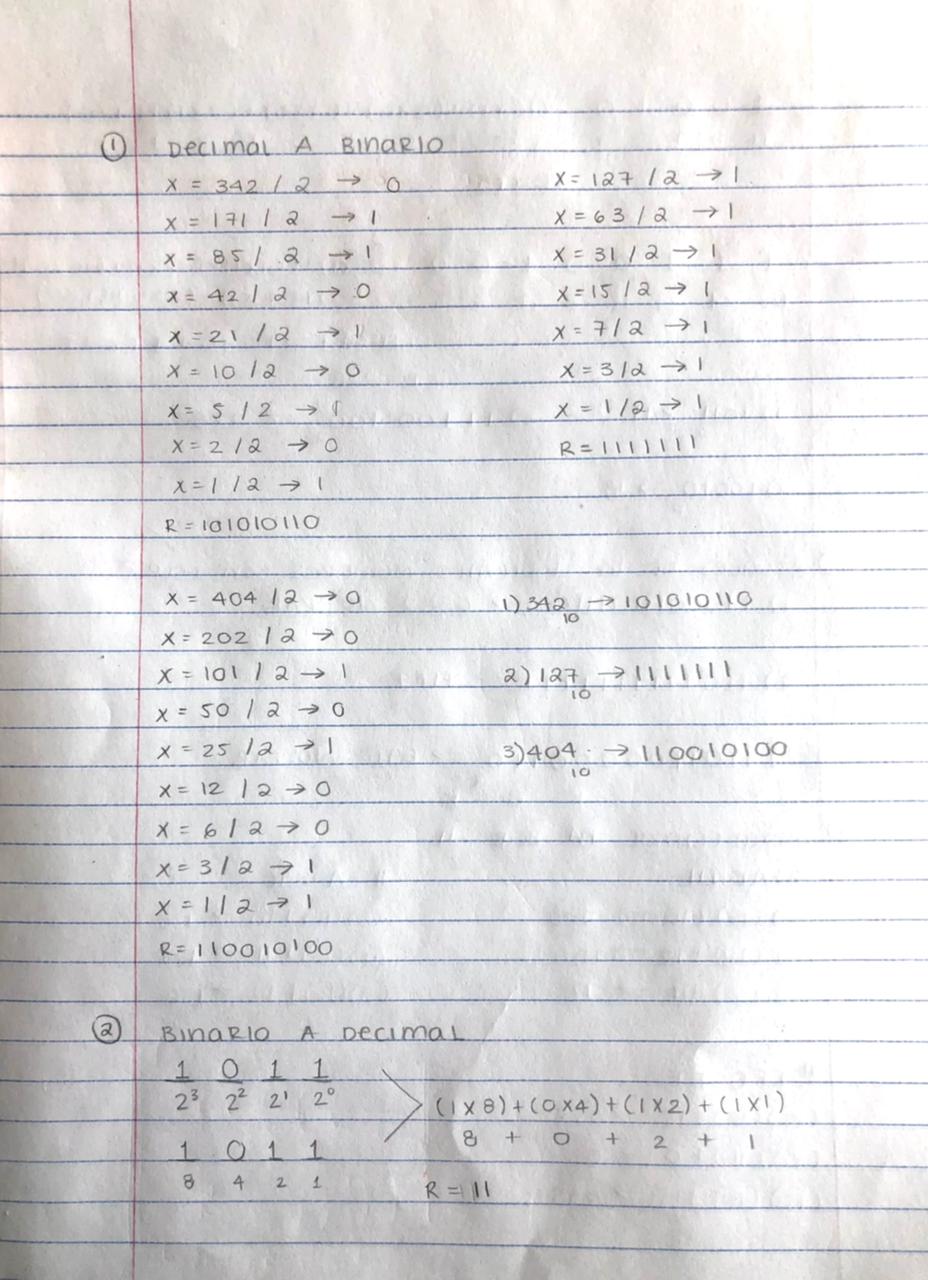 ① Decimal A Binario
x = 342 / 2 → 0
x = 171 / 2 → 1
x = 85 / 2 → 1
x = 42 / 2 → 0
x = 21 / 2 → 1
x = 10 / 2 → 0
x = 5 / 2 → 1
x = 2 / 2 → 0
x = 1 / 2 → 1
R = 101010110
x = 127 / 2 → 1
x = 63 / 2 → 1
x = 31 / 2 → 1
x = 15 / 2 → 1
x = 7 / 2 → 1
x = 3 / 2 → 1
x = 1 / 2 → 1
R = 1111111
x = 404 / 2 → 0
x = 202 / 2 → 0
x = 101 / 2 → 1
x = 50 / 2 → 0
x = 25 / 2 → 1
x = 12 / 2 → 0
x = 6 / 2 → 0
x = 3 / 2 → 1
x = 1 / 2 → 1
R = 110010100
1) 342₁₀ → 101010110
2) 127₁₀ → 1111111
3) 404₁₀ → 110010100
② Binario A Decimal
1 0 1 1
2³ 2² 2¹ 2⁰
1 0 1 1
8 4 2 1
(1 x 8) + (0 x 4) + (1 x 2) + (1 x 1)
8 + 0 + 2 + 1
R = 11